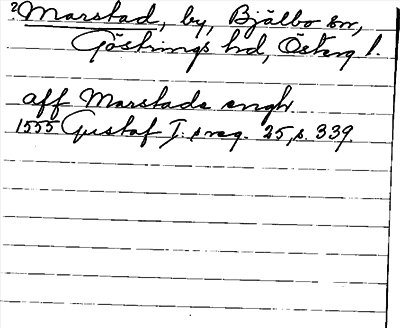 2 Marstad, by, Bjälbo sn,
Göstrings hd, Österg l.
aff Marstada engh
1555 Gustaf I: s reg. 25, s. 339.